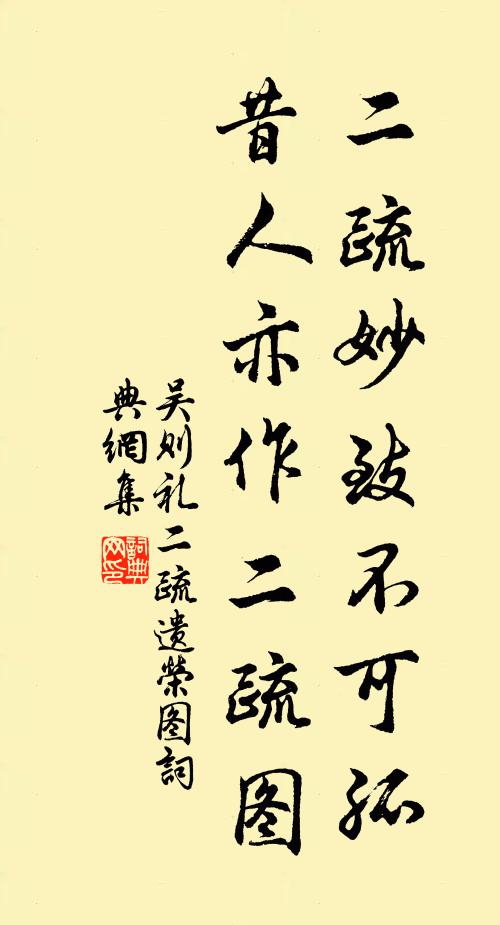 二疏妙致不可孤
昔人亦作二疏图
吴则礼二疏遗荣图詞
典網集
詞典网印